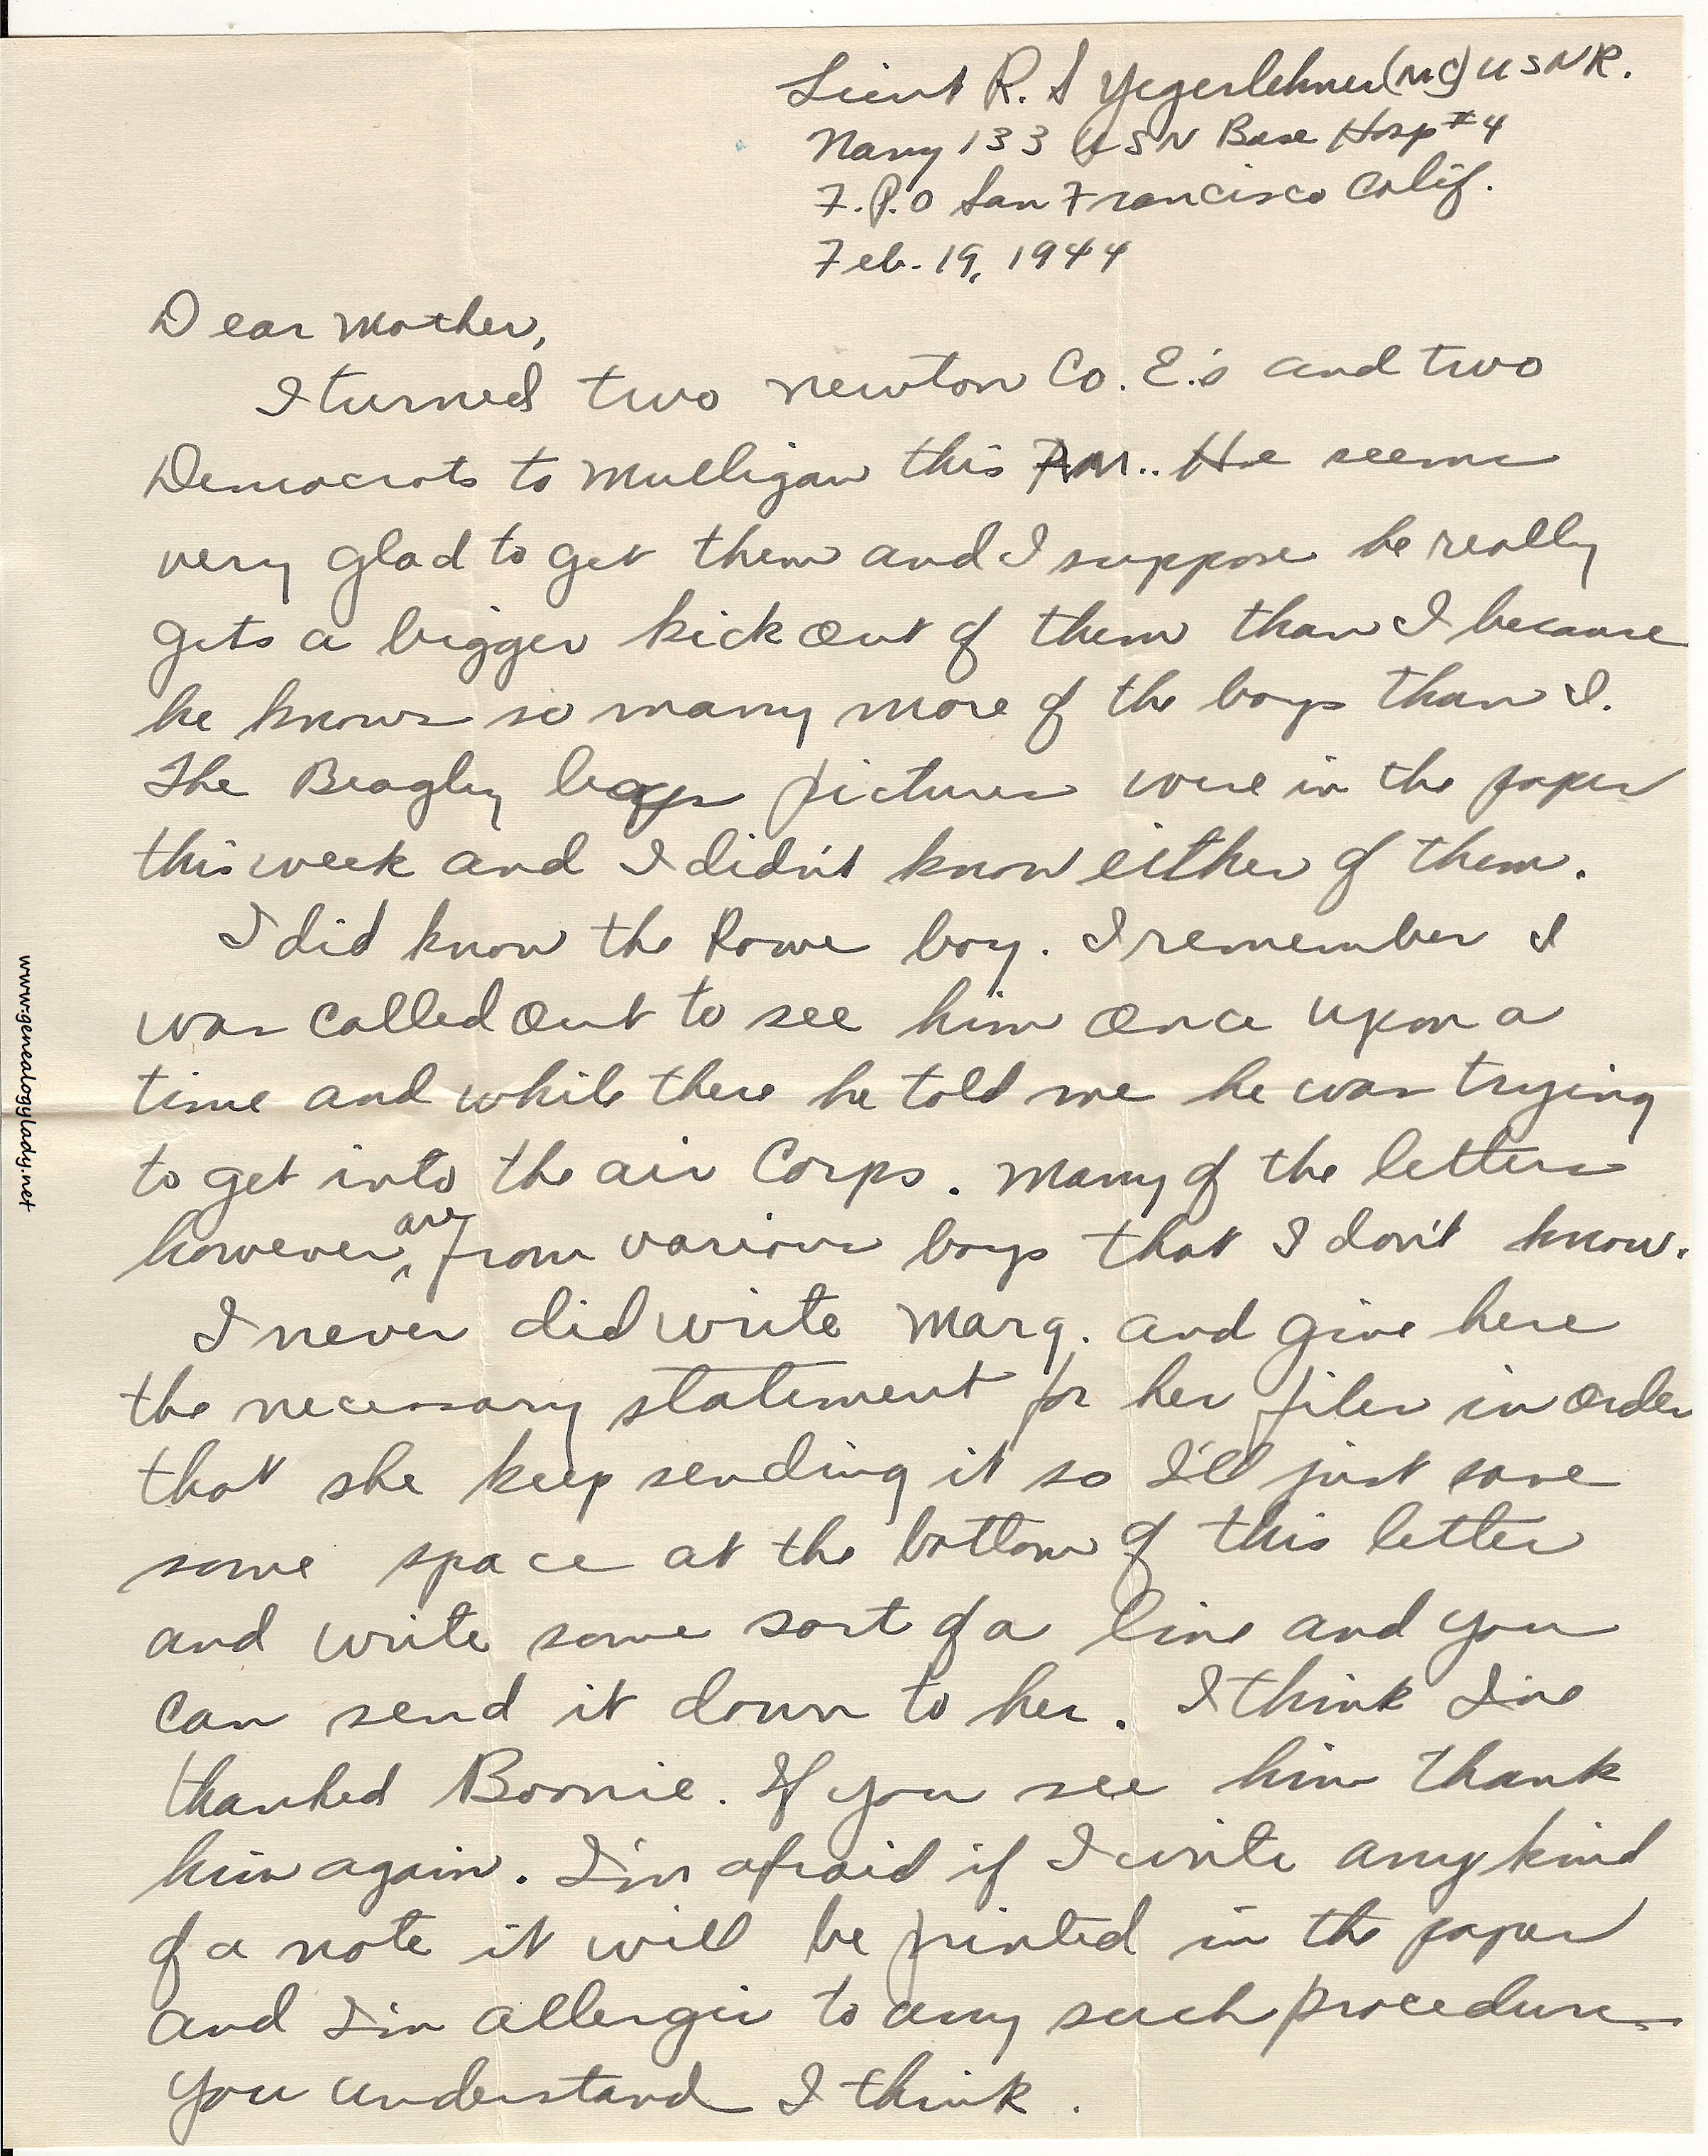 Lieut R. S Yegerlehner (MC) USNR.
Navy 133 USN Base Hosp #4
F.P.O San Francisco Calif.
Feb. 19, 1944
Dear Mother,
I turned two Newton Co. E.'s and two
Democrats to Mulligan this AM.. He seems
very glad to get them and I suppose he really
gets a bigger kick out of them than I because
he knows so many more of the boys than I.
The Beagley boys pictures were in the paper
this week and I didn't know either of them.
I did know the Rowe boy. I remember I
was called out to see him once upon a
time and while there he told me he was trying
to get into the air Corps. Many of the letters
however, are from various boys that I don't know.
I never did write Marg. and give here
the necessary statement for her files in order
that she keep sending it so I'll just save
some space at the bottom of this letter
and write some sort of a line and you
can send it down to her. I think I've
thanked Boonie. If you see him thank
him again. I'm afraid if I write any kind
of a note it will be printed in the paper
and I'm allergic to any such procedure.
You understand I think.
www.genealogylady.net